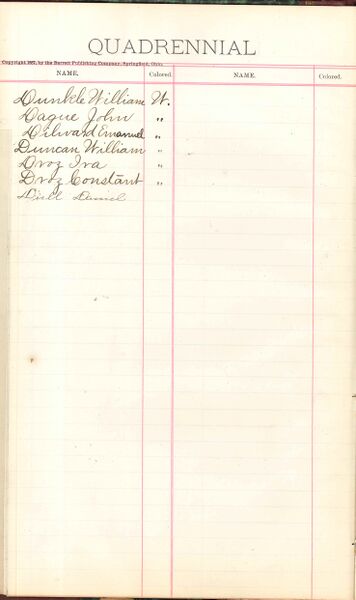 QUADRENNIAL
Copyright 1887, by the Barrett Publishing Company, Springfield, Ohio.
NAME. Colored. NAME. Colored.
Dunkle William W.
Dague John "
Dilward Emanuel "
Duncan William "
Droz Iva "
Droz Constant "
Dull Daniel